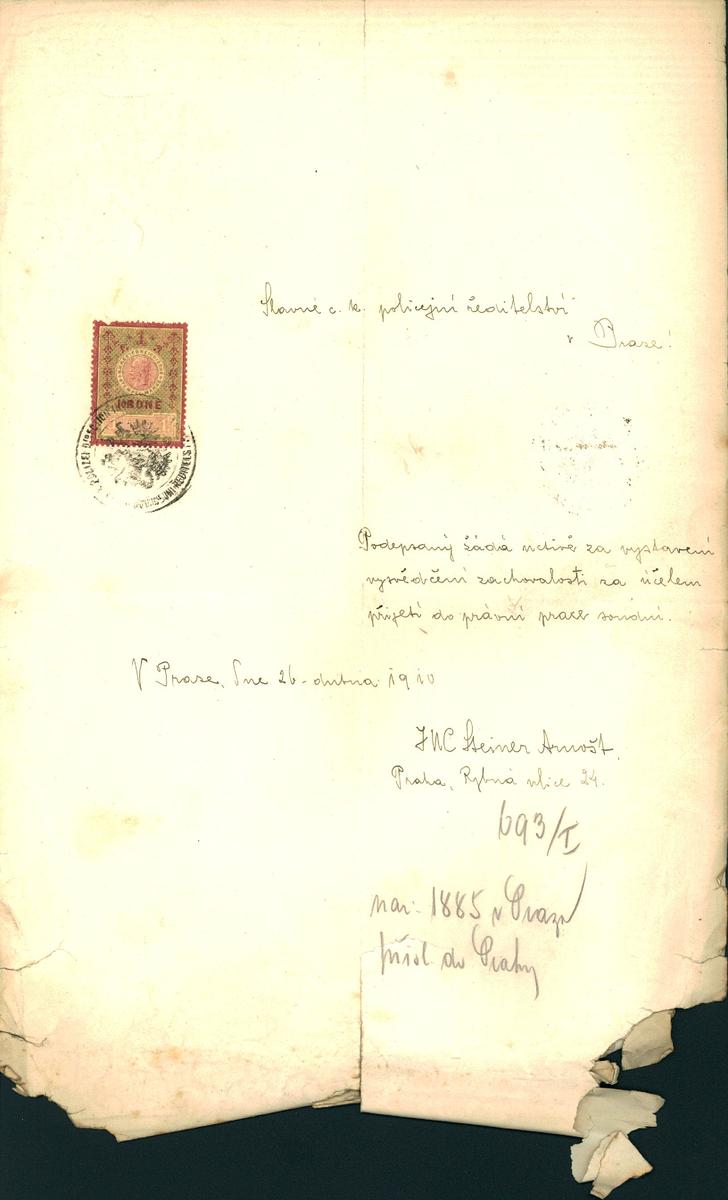 Slavné c. k. policejní ředitelství
v Praze!
1
KRONE
Podepsaný žádá uctivě za vystavení
vysvědčení zachovalosti za účelem
přijetí do právní praxe soudní.
V Praze, dne 26. dubna 1910
JUC Steiner Arnošt,
Praha, Rybná ulice 24.
693/I
nar. 1885 v Praze
přísl. do Prahy